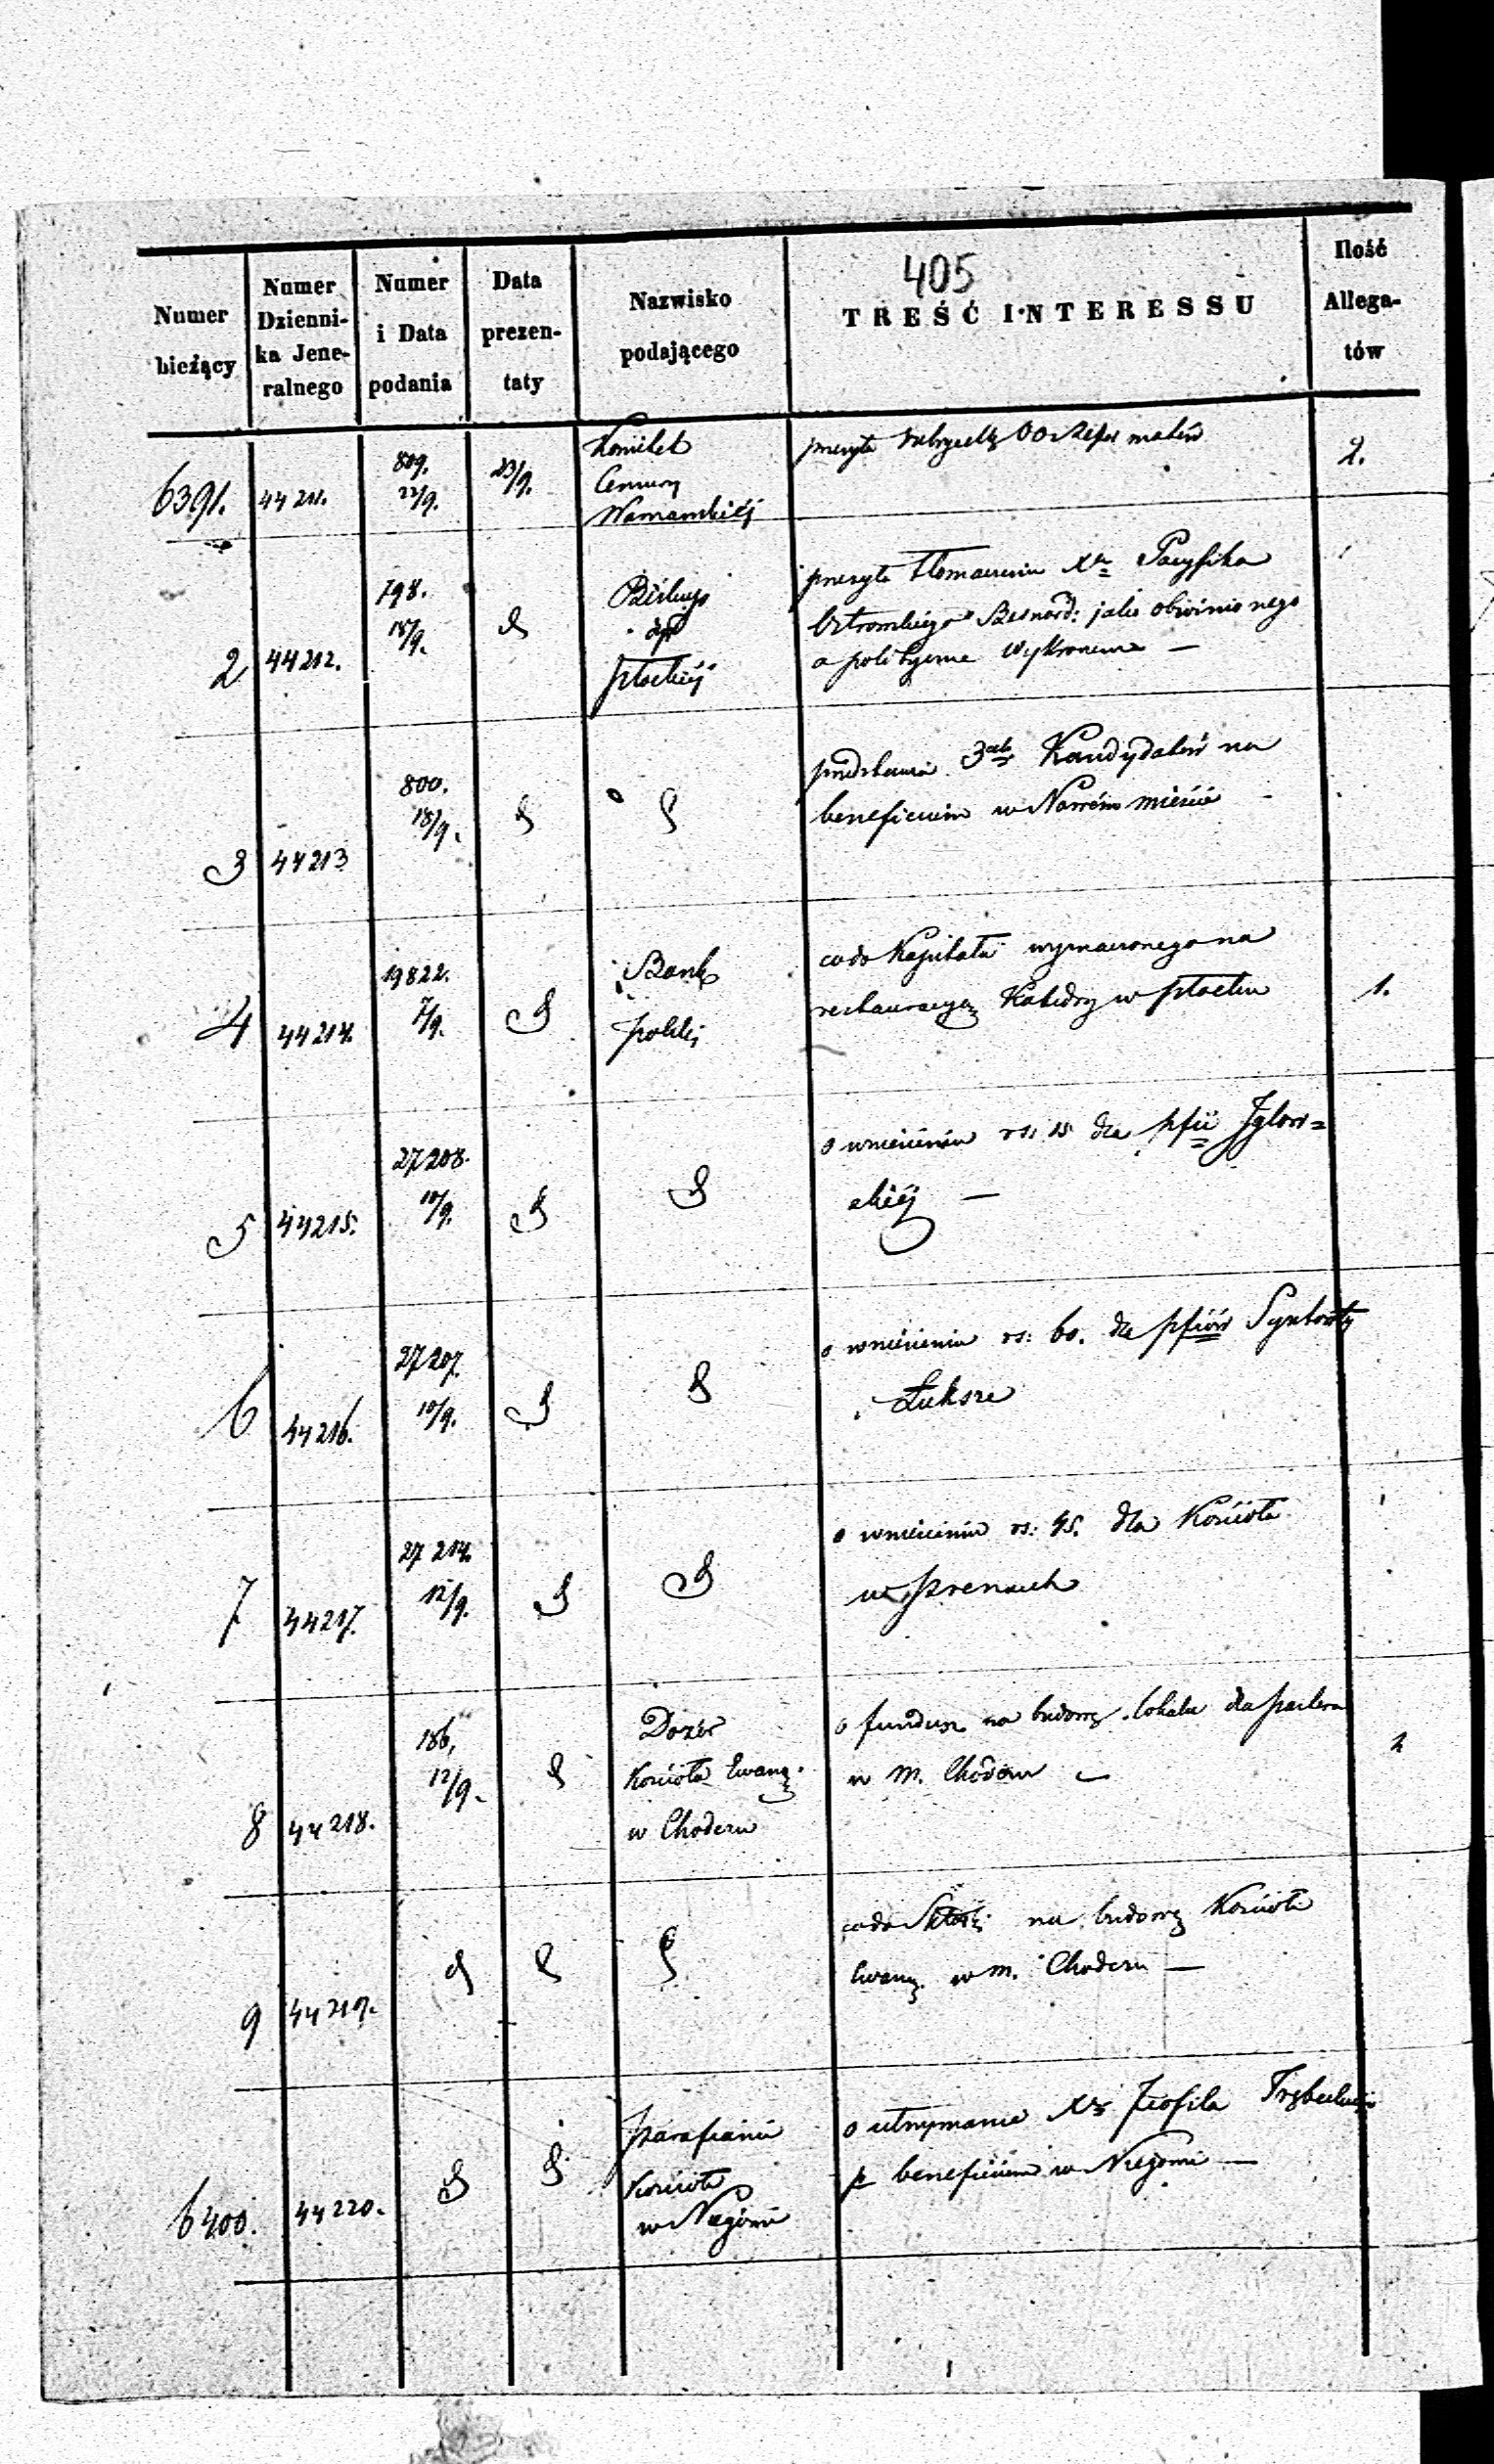 405
Numer bieżący
Numer Dziennika Jeneralnego
Numer i Data podania
Data prezentaty
Nazwisko podającego
TREŚĆ INTERESSU
Ilość Allegatów
6391. 44211. 809. 22/9. 23/9. Komitet
Cenzury
Warszawskiéj
przesyła OO Reformatów 2.
2 44212. 798. 18/9. Biskup
płockiéj
przesyła tłomaczenia Xa Pacyfika
Bernard: jako obwinionego
o polityczne wykroczenia —
3 44213 800. 18/9.
przedstawia 3ch Kandydatów na
beneficium w Nowém mieście
4 44214. 19822. 7/9. Bank
polski
co do Kapitału wyznaczonego na
restauracyą Katedry w płocku 1.
5 44215. 27208. 10/9.
o wniesieniu rs: 15 dla pfii Iglow=
skiéj —
6 44216. 27207. 10/9.
o wniesieniu rs: 60. dla pfiów Syntowty
i Łuksze
7 44217. 27214. 12/9.
o wniesieniu rs: 45. dla Kościoła
w prenach
8 44218. 186. 12/9. Dozór
Kościoła Ewang.
w Chodczu
o fundusz na budowę lokalu dla pastora
w m. Chodczu — 1
9 44219.
co do Składki na budowę Kościoła
Ewang. w m. Chodczu —
6400. 44220. parafianie
Kościoła
w
o utrzymanie Xa Teofila
p beneficium w